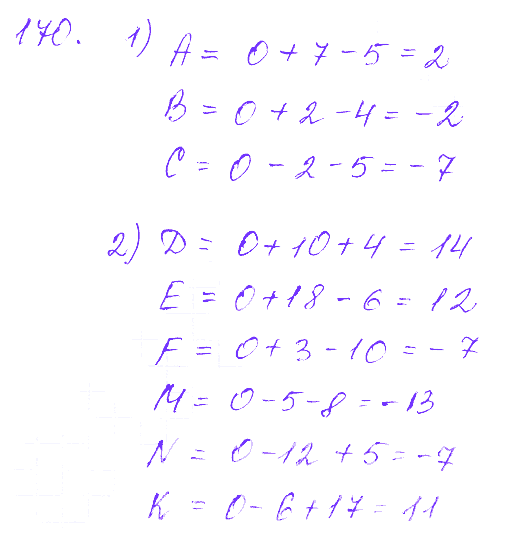 170. 1) A = 0 + 7 - 5 = 2
B = 0 + 2 - 4 = - 2
C = 0 - 2 - 5 = - 7
2) D = 0 + 10 + 4 = 14
E = 0 + 18 - 6 = 12
F = 0 + 3 - 10 = - 7
M = 0 - 5 - 8 = - 13
N = 0 - 12 + 5 = - 7
K = 0 - 6 + 17 = 11